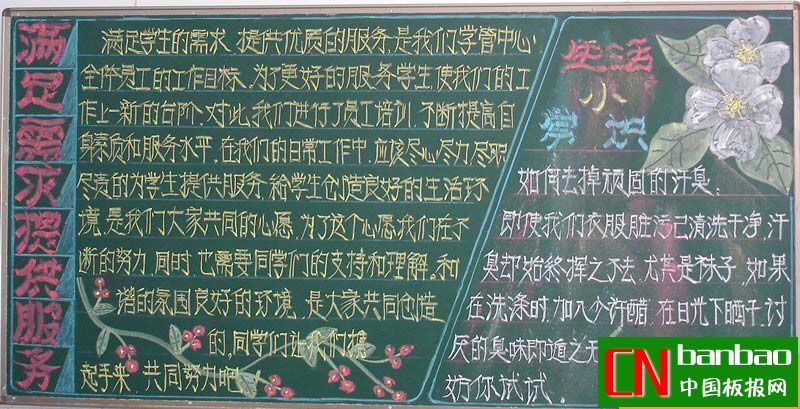 满足需求提供服务
满足学生的需求 提供优质的服务，是我们学管中心
全体员工的工作目标。为了更好的服务学生，使我们的工
作上一新的台阶，对此，我们进行了员工培训，不断提高自
身素质和服务水平。在我们的日常工作中，应该尽心尽力尽职
尽责的为学生提供服务，给学生创造良好的生活环
境，是我们大家共同的心愿，为了这个心愿我们在不
断的努力，同时，也需要同学们的支持和理解。和
谐的氛围良好的环境，是大家共同创造
的，同学们让我们携
起手来 共同努力吧！
生活
小
常识
如何去掉顽固的汗臭：
即使我们衣服脏污已清洗干净，汗
臭却始终挥之不去，尤其是袜子，如果
在洗涤时，加入少许醋，在日光下晒干，讨
厌的臭味即遁之无
妨你试试．
CN banbao
中国板报网